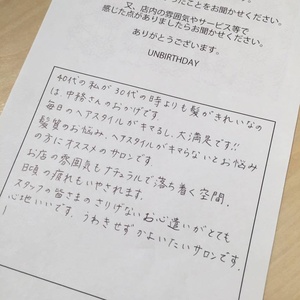 又、店内の雰囲気やサービス等で
感じた点がありましたらお聞かせください。
ありがとうございます。
UNBIRTHDAY
40代の私が30代の時よりも髪がきれいなの
は、中務さんのおかげです。
毎日のヘアスタイルがキマるし、大満足です!!
髪質のお悩み、ヘアスタイルがキマらないとお悩み
の方にオススメのサロンです。
お店の雰囲気もナチュラルで落ち着く空間。
日頃の疲れもいやされます。
スタッフの皆さまのさりげないお心遣いがとても
心地いいです。うわきせずかよいたいサロンです。